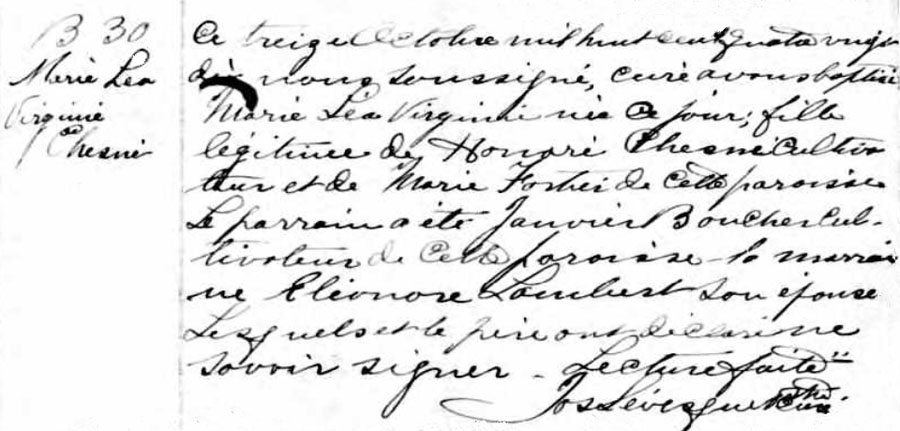 B 30
Marie Lea
Virginie
Chesné
Ce treize Octobre mil huit cent quatre vingt
dix nous soussigné, curé avons baptisé
Marie Léa Virginie née ce jour, fille
légitime de Honoré Chesné Cultiva
teur et de Marie Fortier de cette paroisse
Le parrain a été Janvier Boucher Cul-
tivateur de cette paroisse - la marrai
ne Eléonore Lambert son épouse
Lesquels et le père ont déclaré ne
savoir signer - Lecture faite
Jos Lévesque Ptre
Curé